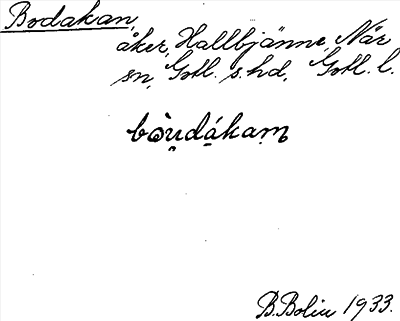 Bodakan,
åker, Hallbjänne, När
sn, Gotl. s. hd, Gotl. l.
bòu̯dá̱kaṃ
B. Bolin 1933.